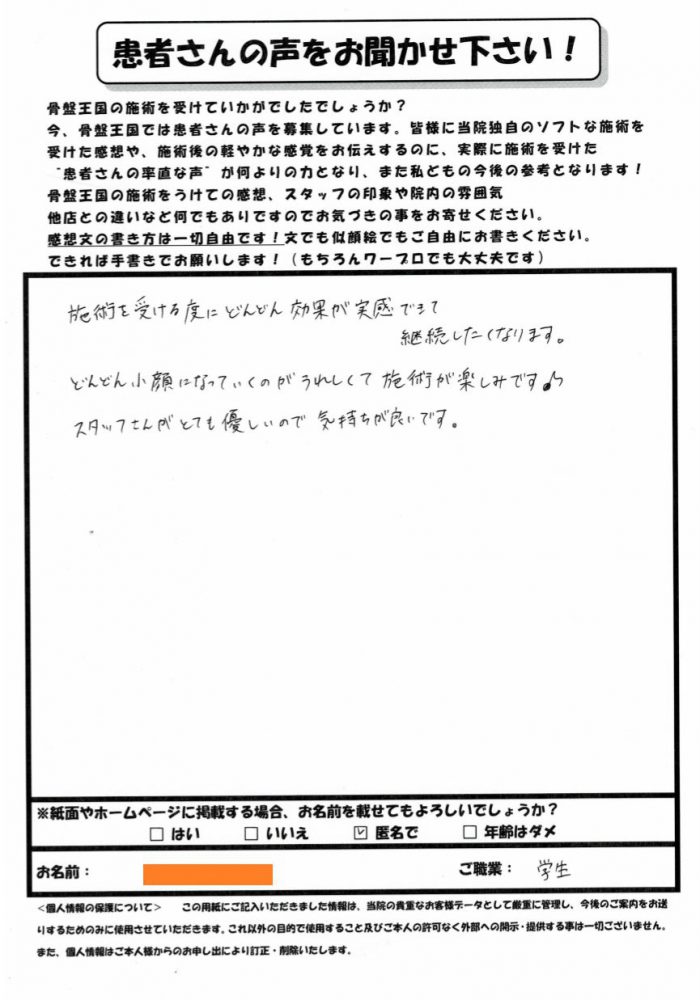 患者さんの声をお聞かせ下さい！
骨盤王国の施術を受けていかがでしたでしょうか？
今、骨盤王国では患者さんの声を募集しています。皆様に当院独自のソフトな施術を
受けた感想や、施術後の軽やかな感覚をお伝えするのに、実際に施術を受けた
“患者さんの率直な声”が何よりの力となり、また私どもの今後の参考となります！
骨盤王国の施術をうけての感想、スタッフの印象や院内の雰囲気
他店との違いなど何でもありですのでお気づきの事をお寄せください。
感想文の書き方は一切自由です！文でも似顔絵でもご自由にお書きください。
できれば手書きでお願いします！（もちろんワープロでも大丈夫です）
施術を受ける度にどんどん効果が実感できて
継続したくなります。
どんどん小顔になっていくのがうれしくて施術が楽しみです♪
スタッフさんがとても優しいので気持ちが良いです。
※紙面やホームページに掲載する場合、お名前を載せてもよろしいでしょうか？
□ はい □ いいえ ☑ 匿名で □ 年齢はダメ
お名前： ご職業： 学生
＜個人情報の保護について＞ この用紙にご記入いただきました情報は、当院の貴重なお客様データとして厳重に管理し、今後のご案内をお送
りするためのみに使用させていただきます。これ以外の目的で使用すること及びご本人の許可なく外部への開示・提供する事は一切ございません。
また、個人情報はご本人様からのお申し出により訂正・削除いたします。